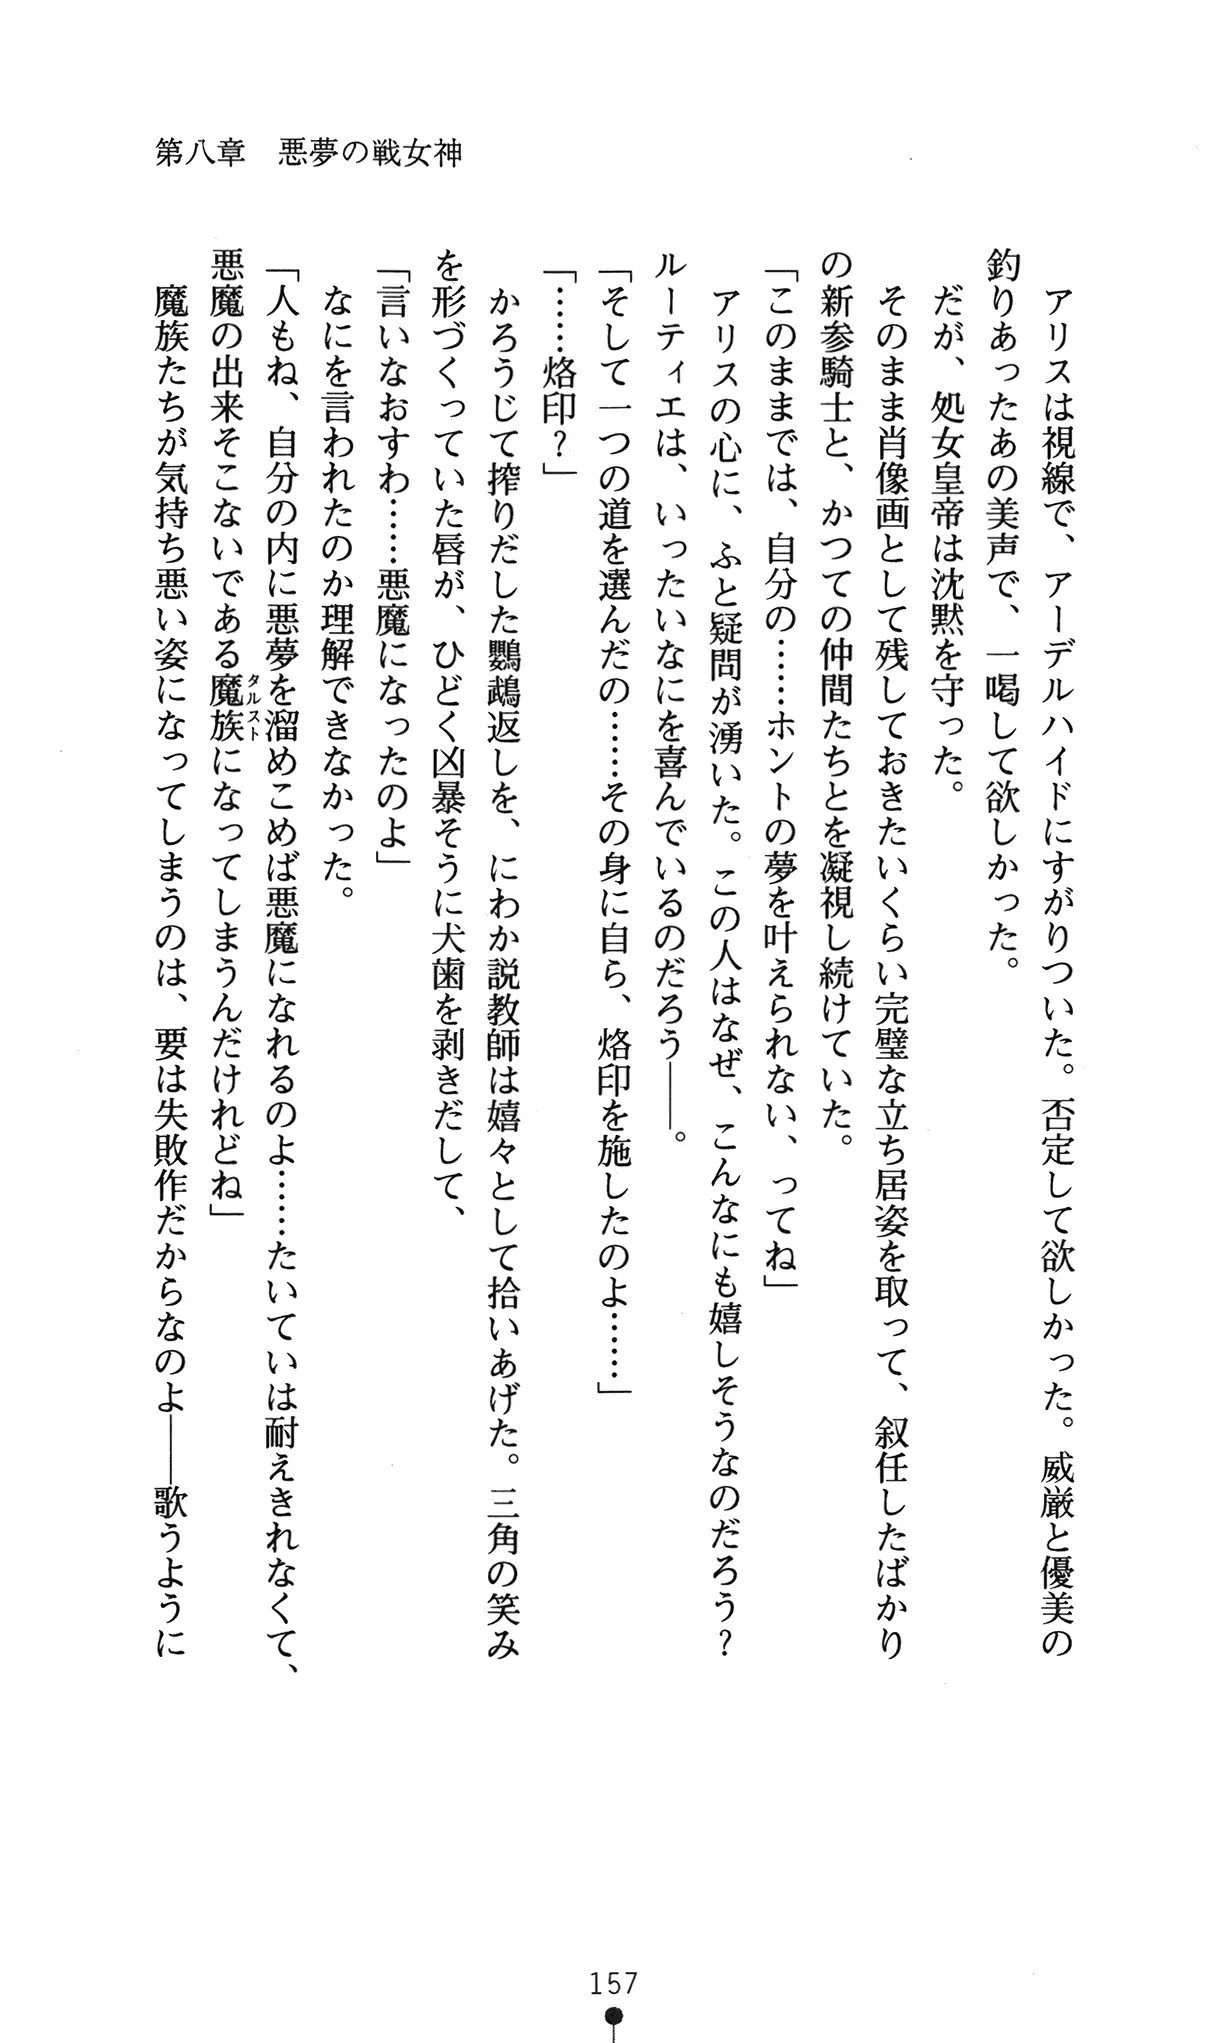 第八章　悪夢の戦女神
　アリスは視線で、アーデルハイドにすがりついた。否定して欲しかった。威厳と優美の
釣りあったあの美声で、一喝して欲しかった。
　だが、処女皇帝は沈黙を守った。
　そのまま肖像画として残しておきたいくらい完璧な立ち居姿を取って、叙任したばかり
の新参騎士と、かつての仲間たちとを凝視し続けていた。
「このままでは、自分の……ホントの夢を叶えられない、ってね」
　アリスの心に、ふと疑問が湧いた。この人はなぜ、こんなにも嬉しそうなのだろう？
ルーティエは、いったいなにを喜んでいるのだろう――。
「そして一つの道を選んだの……その身に自ら、烙印を施したのよ……」
「……烙印？」
　かろうじて搾りだした鸚鵡返しを、にわか説教師は嬉々として拾いあげた。三角の笑み
を形づくっていた唇が、ひどく凶暴そうに犬歯を剥きだして、
「言いなおすわ……悪魔になったのよ」
　なにを言われたのか理解できなかった。
「人もね、自分の内に悪夢を溜めこめば悪魔になれるのよ……たいていは耐えきれなくて、
悪魔の出来そこないである魔族タルストになってしまうんだけれどね」
　魔族たちが気持ち悪い姿になってしまうのは、要は失敗作だからなのよ――歌うように
157